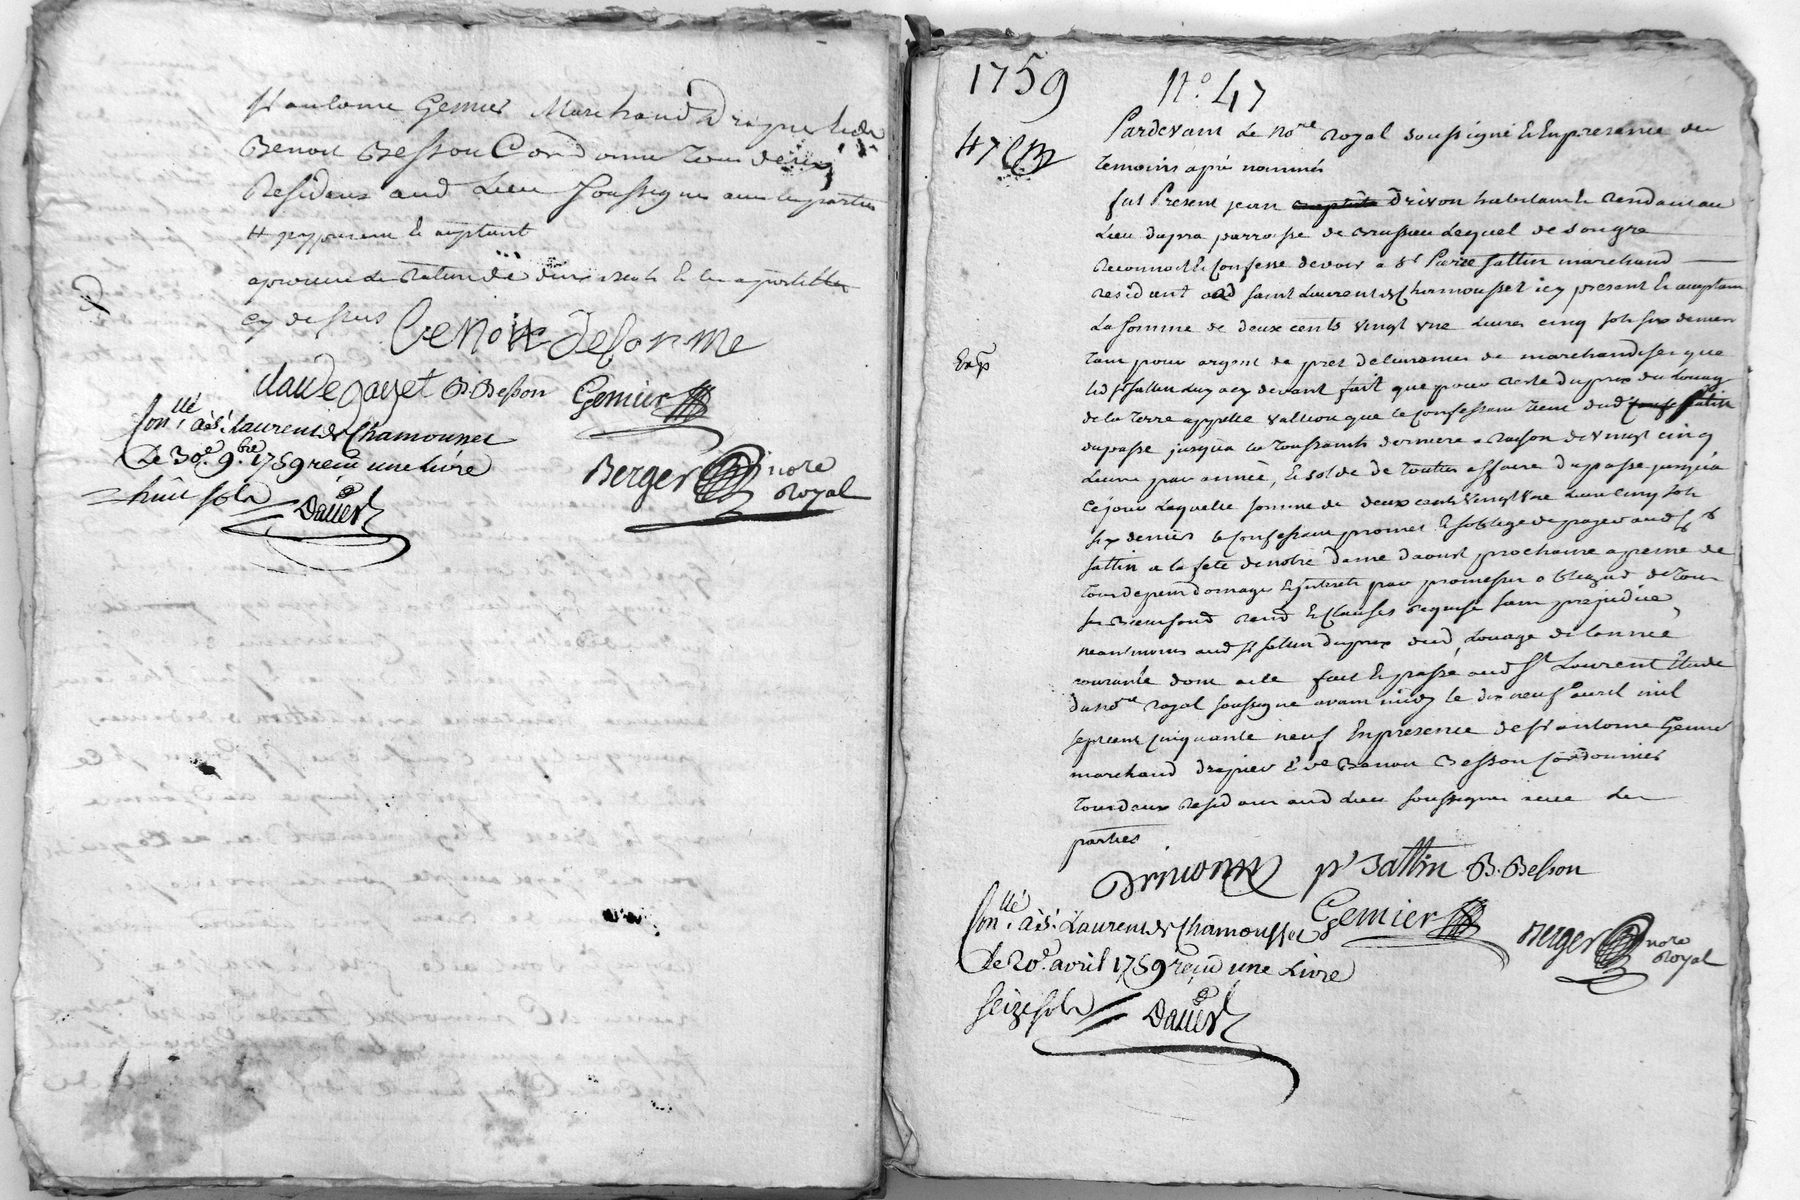 Sr antoine Gemier Marchand Drapier sieur
Benoit Besson Cordonnier Tous deux
Residans aud Lieu Soussignes avec les parties
Ce Present et acceptant
aprouvé la rature de deux mots
cy dessus
Benoit Delorme
claude gayet B. Besson Gemier
Berger nore
Royal
Con.llé à St. Laurent de Chamousset
Le 30e. 9.bre 1759 reçu une livre
huit sols Daver
1759 N.o 47
47
Pardevant Le No.re royal soussigné Et En presence des
temoins apré nommés
fut Present jean Drivon habitant Et
Lieu parroisse de Brussieu Lequel de son gre
Reconnoit Et Confesse devoir a Sr Pierre Sattin marchand
residant aud saint Laurent de Chamousset icy present Et acceptant
La somme de deux cents vingt une Livres cinq sols six deniers
tant pour argent de pret delivrances de marchandises que
Exp
led Sr Sattin luy a cy devant fait que pour reste du prix du Louage
de la terre appellé que le Confessant tient dud Sattin
du passé jusqu'a la toussaints derniere a raison de vingt cinq
Livres par année, Et solde de toutes affaires du passé jusqu'a
Ce jour Laquelle somme de deux cents vingt une Livres Cinq sols
six deniers le Confessant promet Et s'oblige de payer aud Sr
Sattin a la fete de notre dame d'aoust prochaine a peine de
tous depens domages Et interets par promesses obligaõn de tous
ses biens Et Clauses requise sans prejudice
neanmoins aud Sr Sattin du prix dud Louage de l'année
courante dont acte fait Et passé aud St Laurent Etude
du no.re royal soussigné avant midy le dix neuf avril mil
sept cent cinquante neuf En presence de Sr antoine Gemier
marchand drapier Et de Benoit Besson Cordonnier
tous deux residans aud Lieu soussignes avec les
parties
Drivon pr Sattin B. Besson
Gemier
Berger nore
Royal
Con.llé à St. Laurent de Chamousset
Le 20e. avril 1759 reçu une Livre
seize sols Daver